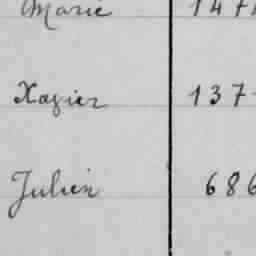 Marie 147
Xavier 137
Julien 686